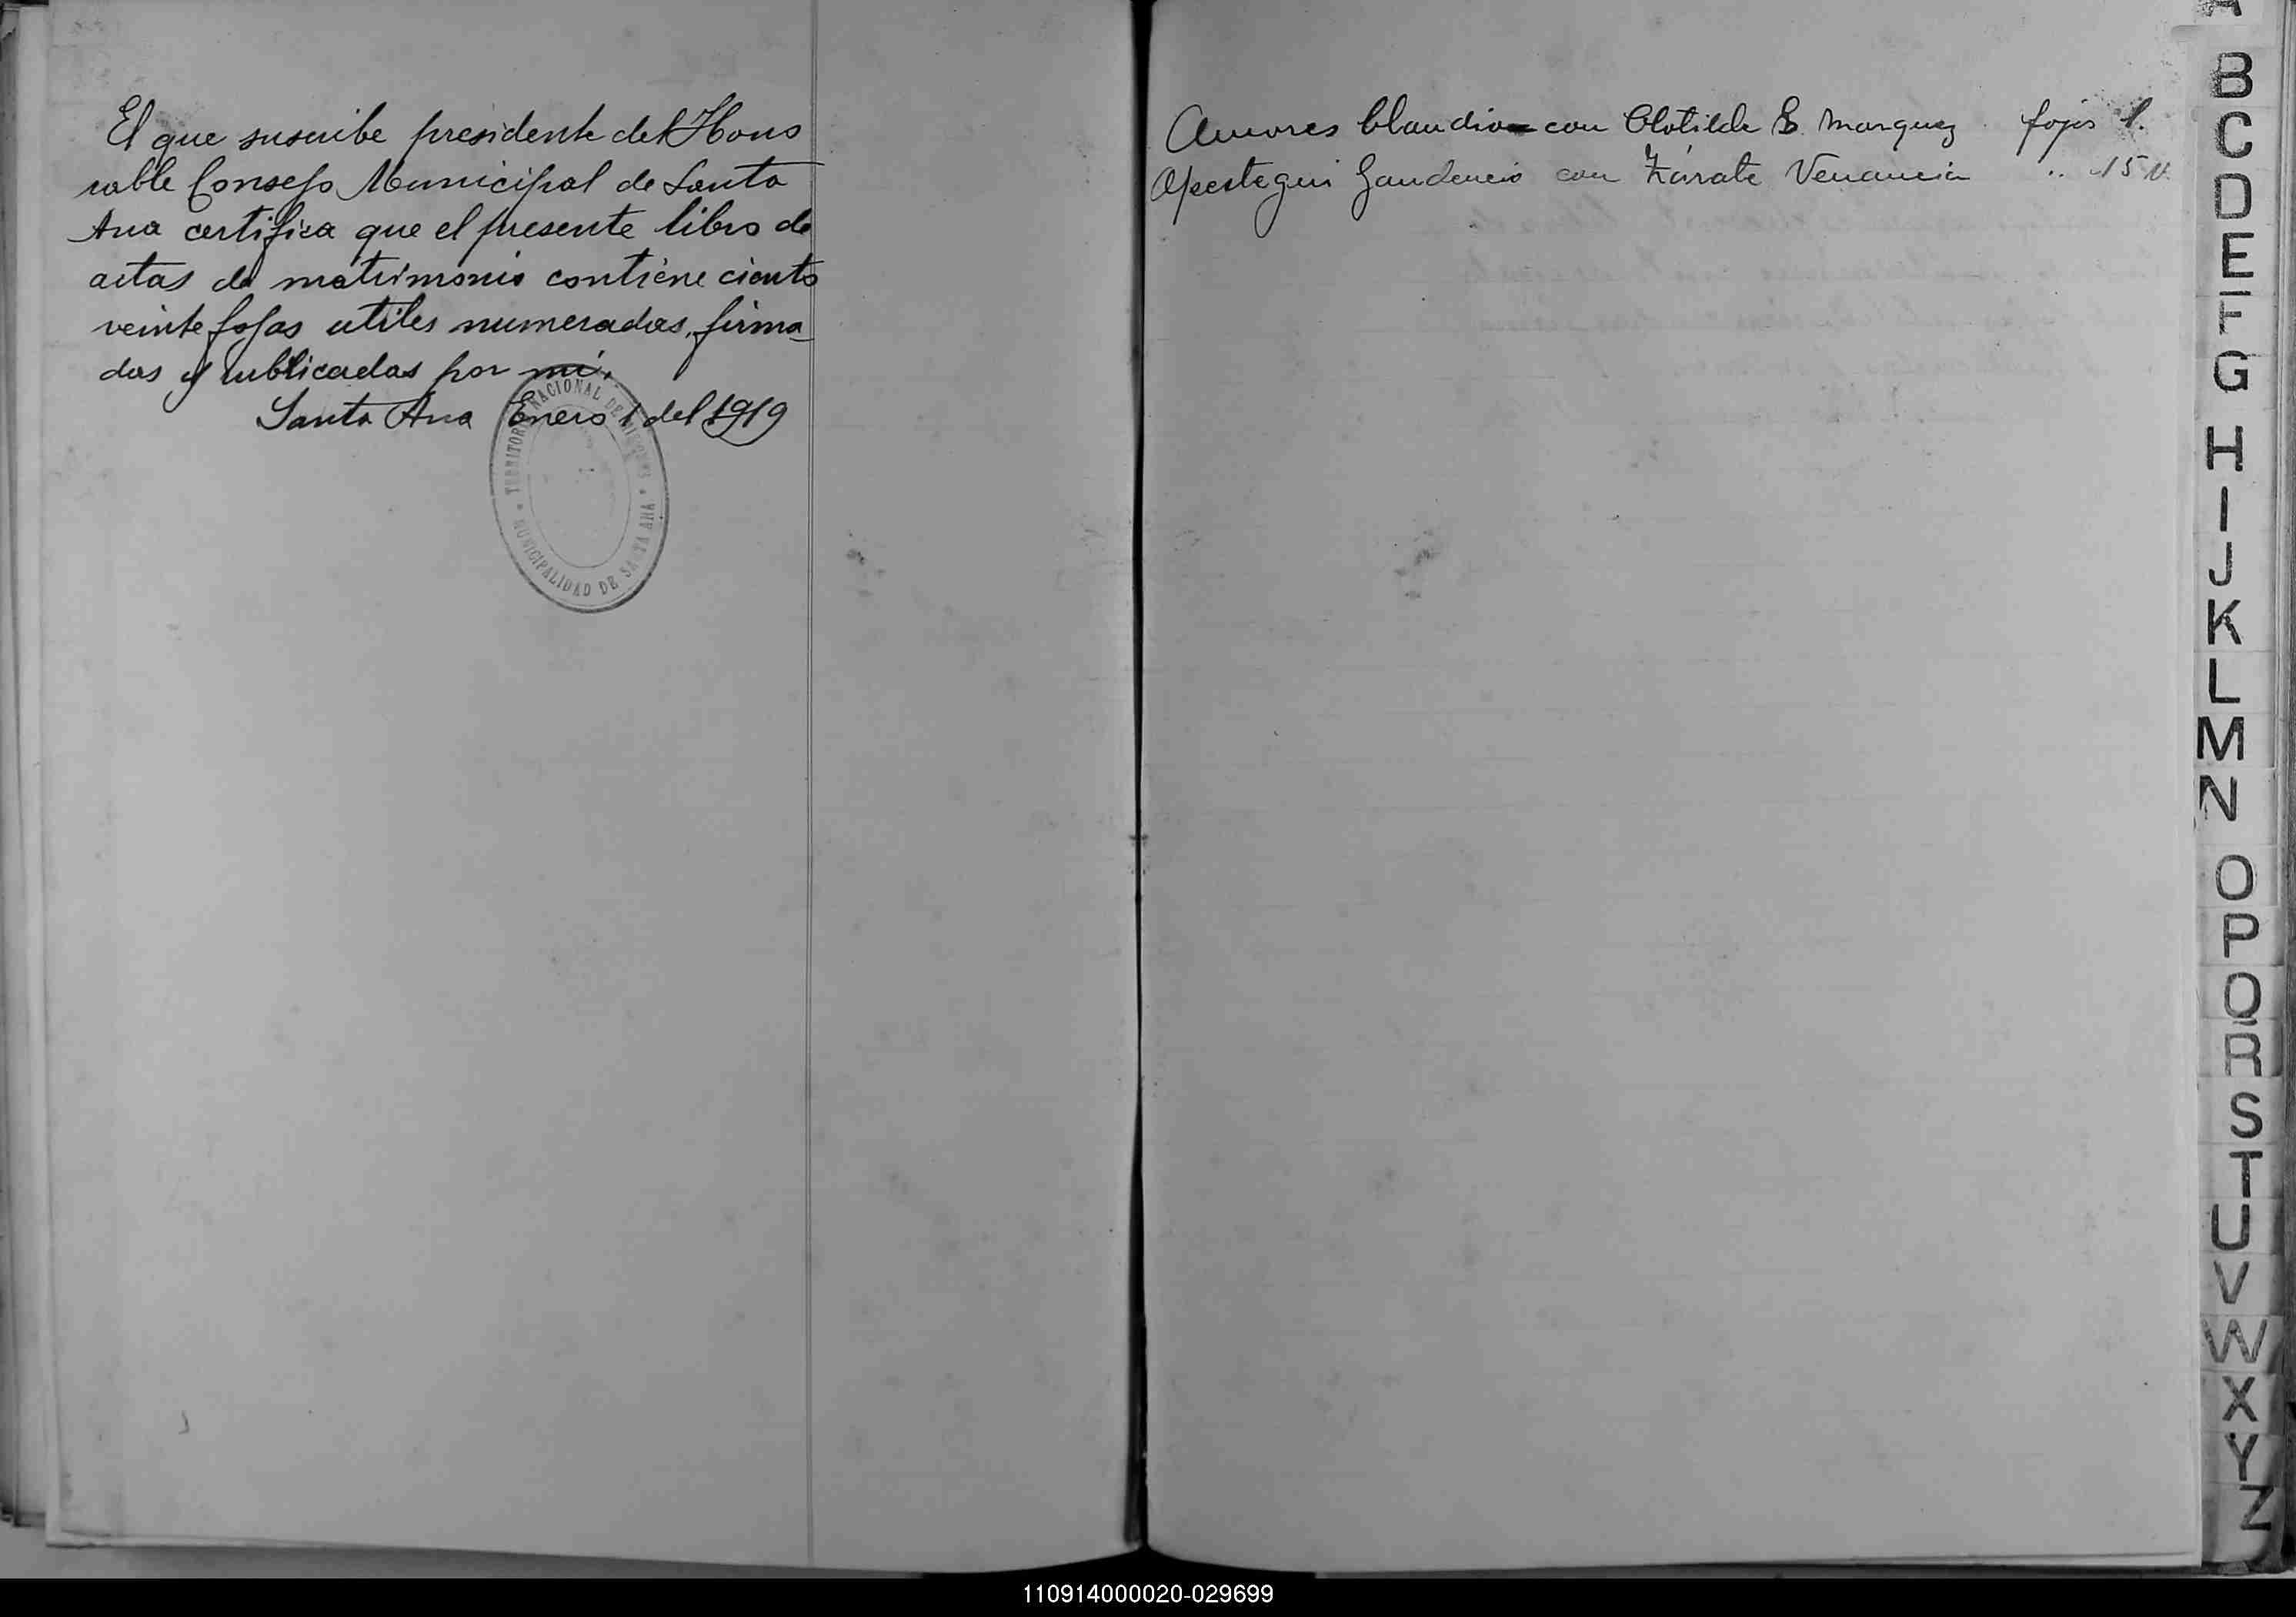 El que suscribe presidente del Hono
rable Consejo Municipal de Santa
Ana certifica que el presente libro de
actas de matrimonio contiene ciento
veinte fojas utiles numeradas, firma_
das y rublicadas por mi.
Santa Ana Enero 1 del 1919
TERRITORIO NACIONAL DE MISIONES
MUNICIPALIDAD DE SANTA ANA
Amores Claudio con Clotilde S. Marquez fojas 1.
Apestegui Gaudencio con Zárate Venancia .. 15 v.
A
B
C
D
E
F
G
H
I
J
K
L
M
N
O
P
Q
R
S
T
U
V
W
X
Y
Z
110914000020-029699